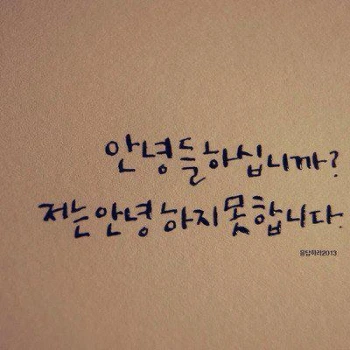 안녕들하십니까?
저는안녕하지못합니다.
응답하라2013